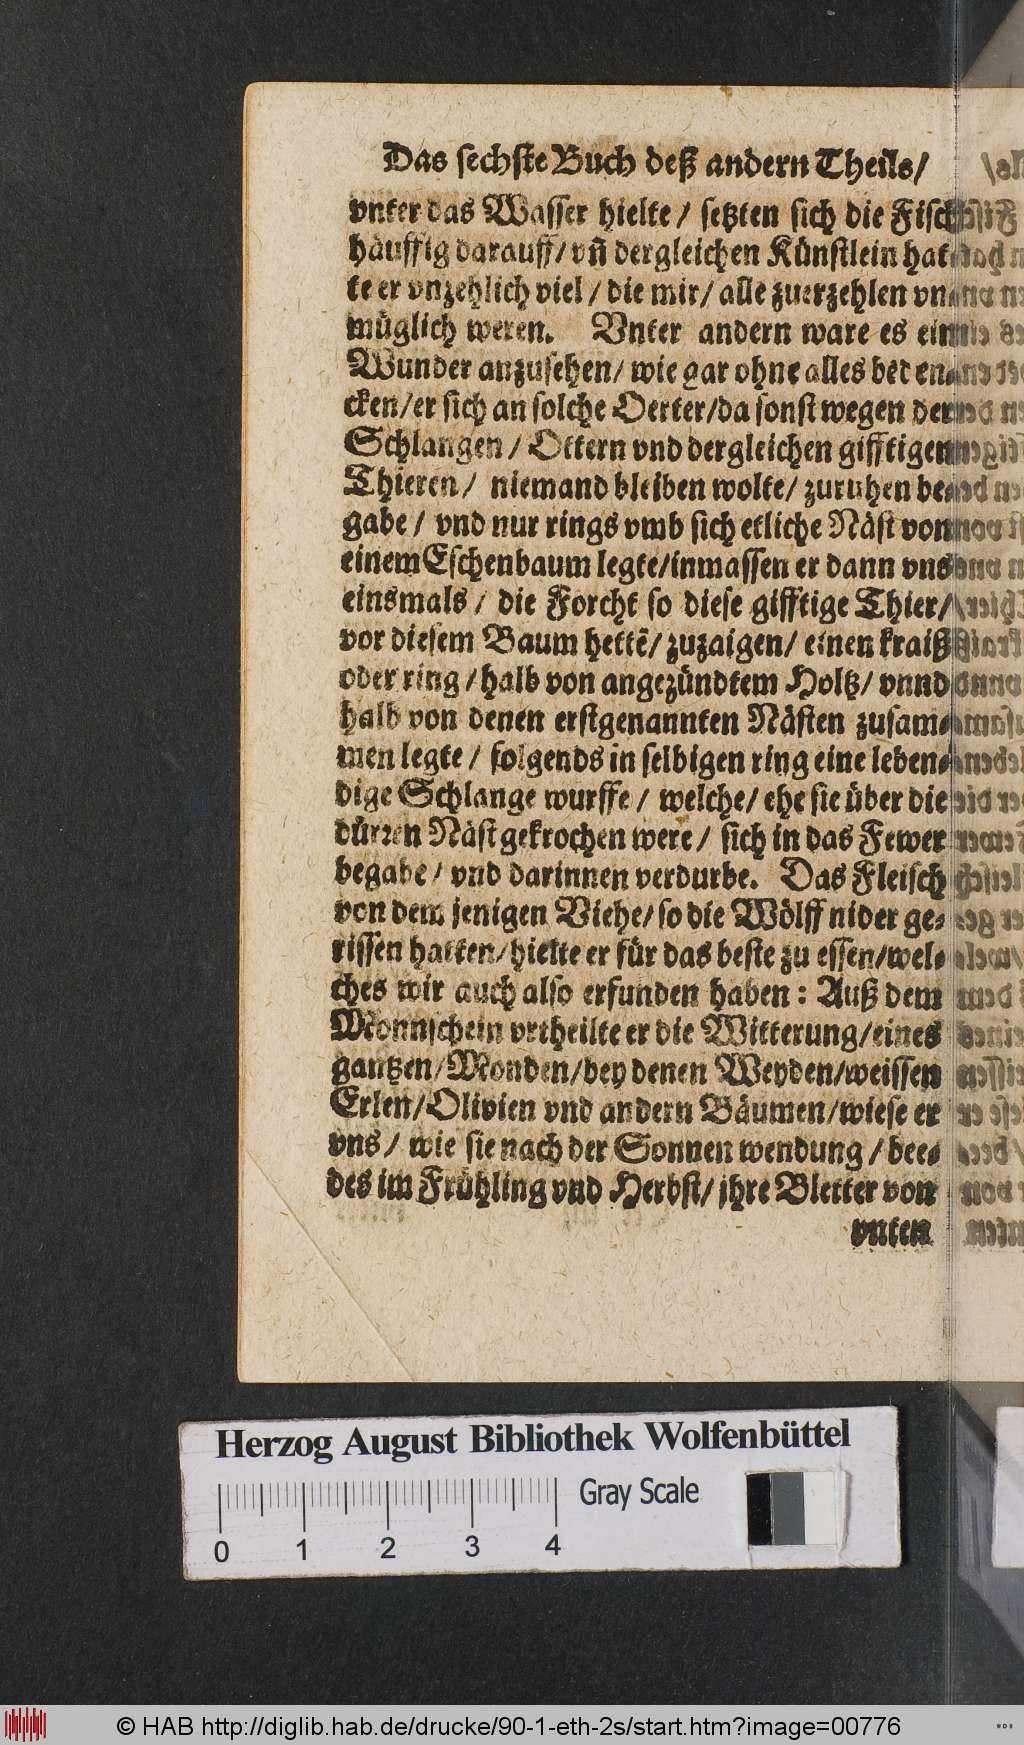 Das sechste Buch deß andern Theils/
vnter das Wasser hielte / setzten sich die Fisch
häuffig darauff/ vñ dergleichen Künstlein hat-
te er vnzehlich viel / die mir/ alle zuerzehlen vn-
müglich weren. Vnter andern ware es ein
Wunder anzusehen/ wie gar ohne alles beden-
cken/er sich an solche Oerter/da sonst wegen der
Schlangen / Ottern vnd dergleichen gifftigen
Thieren/ niemand bleiben wolte/ zuruhen be-
gabe / vnd nur rings vmb sich etliche Näst von
einem Eschenbaum legte/inmassen er dann vns
einsmals / die Forcht so diese gifftige Thier/
vor diesem Baum hettẽ/ zuzaigen/ einen kraiß
oder ring / halb von angezündtem Holtz/ vnnd
halb von denen erstgenannten Nästen zusam-
men legte / folgends in selbigen ring eine leben-
dige Schlange wurffe / welche/ ehe sie über die
dürren Näst gekrochen were / sich in das Fewer
begabe / vnd darinnen verdurbe. Das Fleisch
von dem jenigen Viehe/ so die Wölff nider ge-
rissen hatten/ hielte er für das beste zu essen/wel-
ches wir auch also erfunden haben : Auß dem
Monnschein vrtheilte er die Witterung/eines
gantzen/Monden/bey denen Weyden/weissen
Erlen/Olivien vnd andern Bäumen/wiese er
vns / wie sie nach der Sonnen wendung / bee-
des im Frühling vnd Herbst/ jhre Bletter von
vnten
Herzog August Bibliothek Wolfenbüttel
Gray Scale
0 1 2 3 4
© HAB http://diglib.hab.de/drucke/90-1-eth-2s/start.htm?image=00776